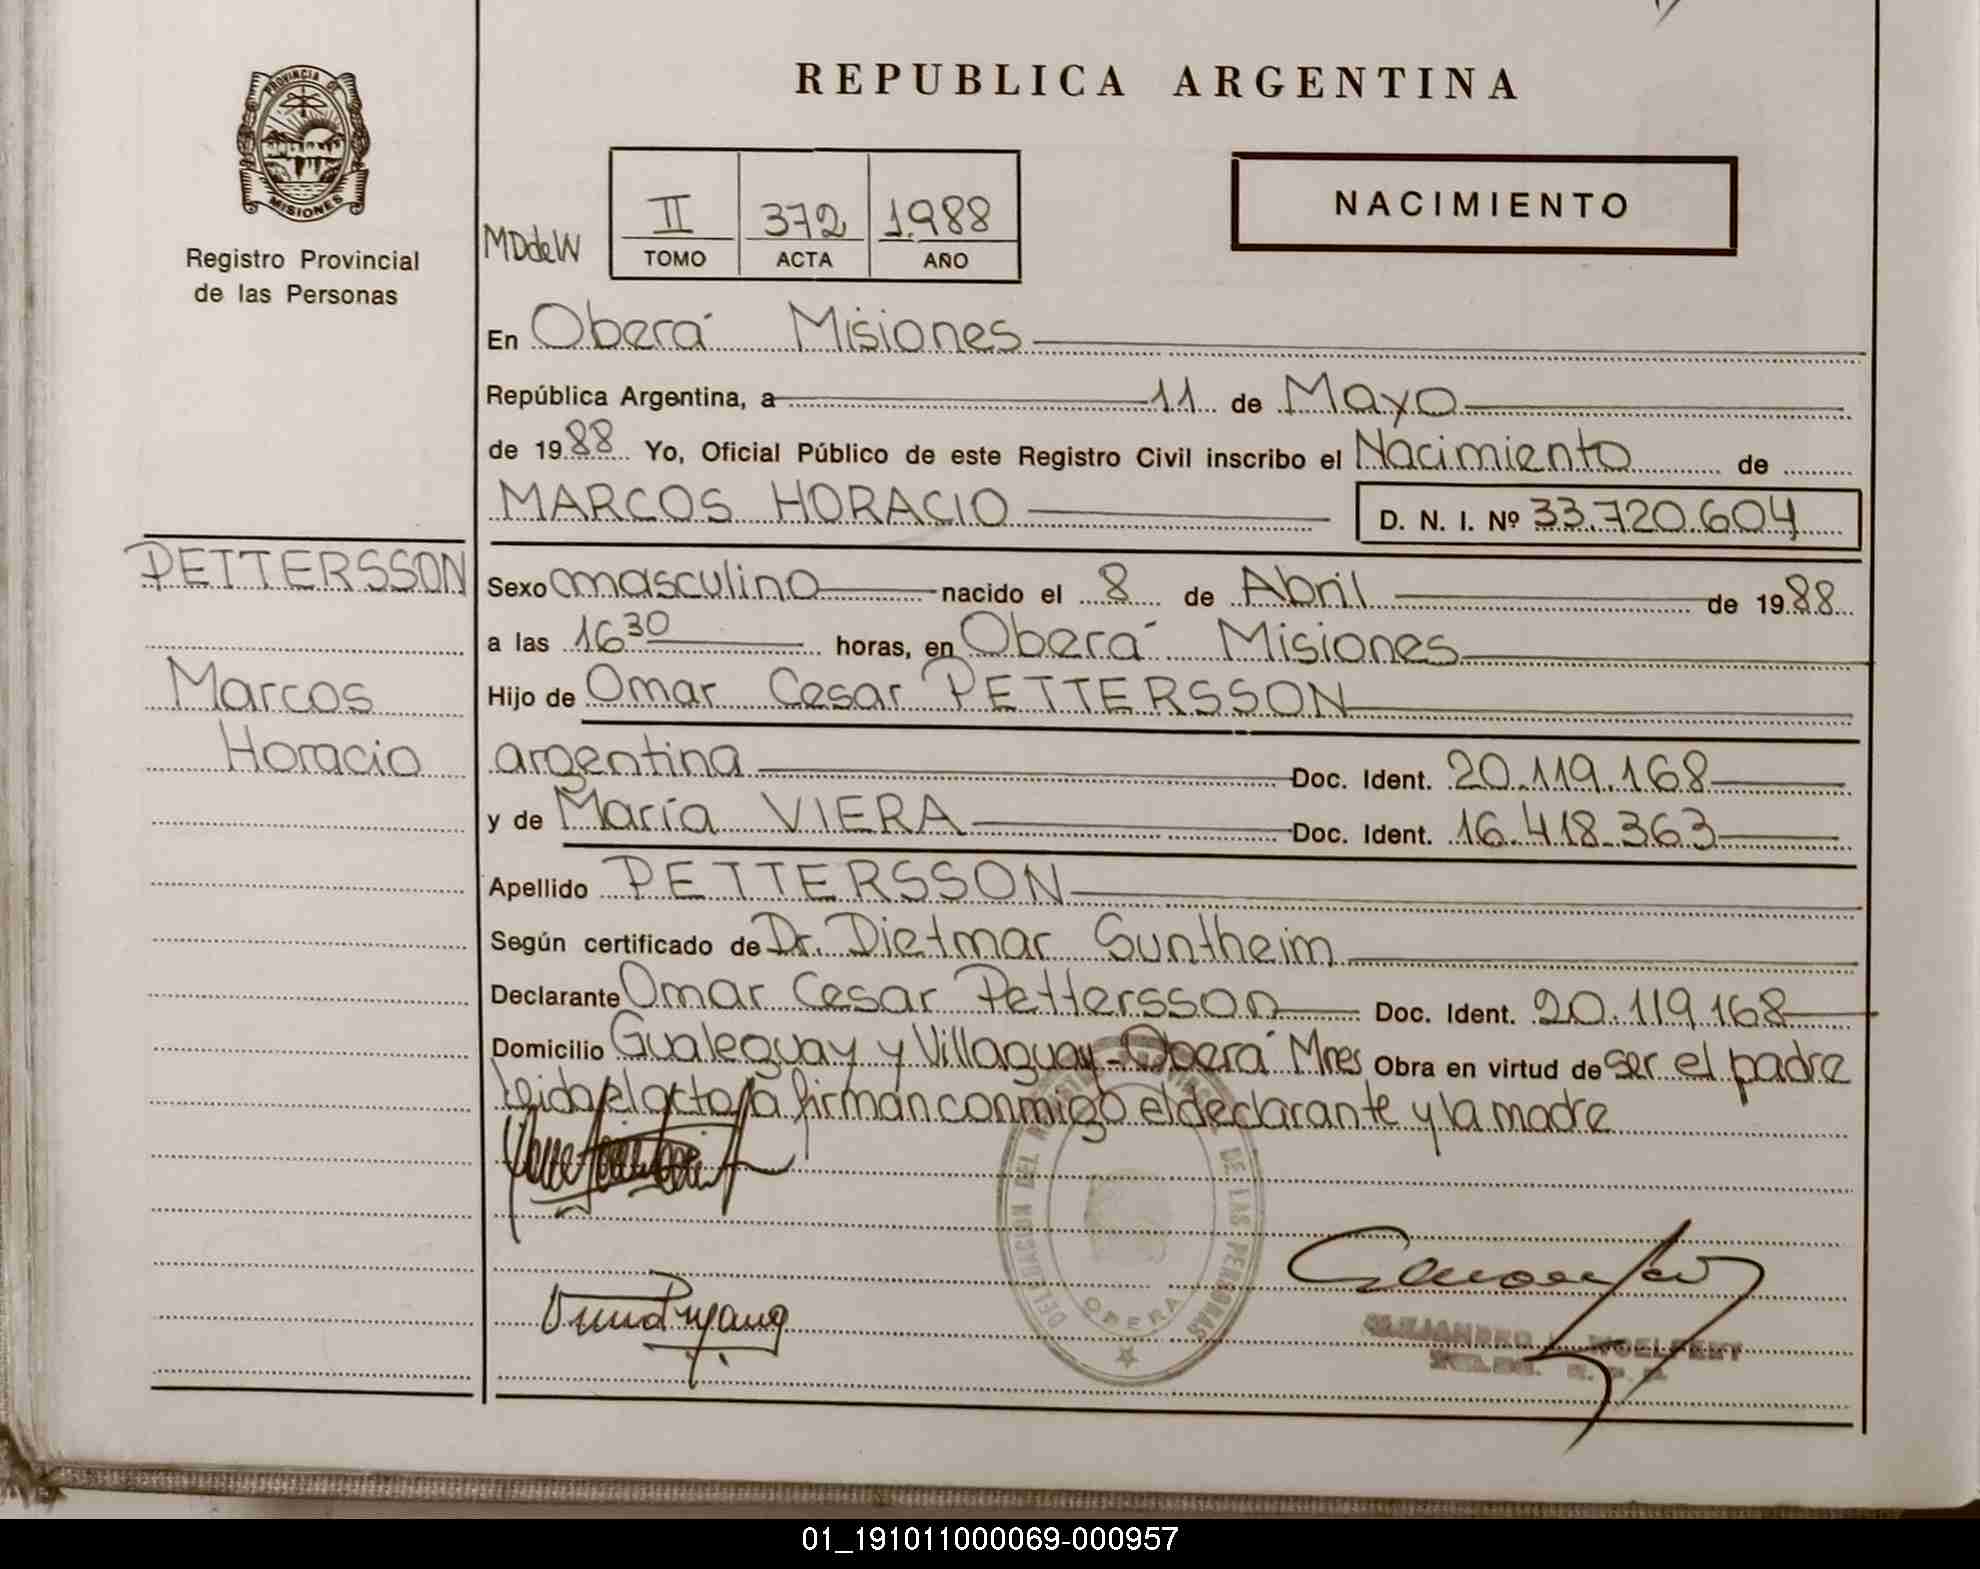 REPUBLICA ARGENTINA
PROVINCIA DE
MISIONES
Registro Provincial
de las Personas
NACIMIENTO
MDdeW
II 372 1.988
TOMO ACTA AÑO
En Oberá Misiones
República Argentina, a 11 de Mayo
de 1988 Yo, Oficial Público de este Registro Civil inscribo el Nacimiento de
MARCOS HORACIO D. N. I. Nº 33.720.604
PETTERSSON
Marcos
Horacio
Sexo masculino nacido el 8 de Abril de 1988
a las 16 30 horas, en Oberá Misiones
Hijo de Omar Cesar PETTERSSON
argentina Doc. Ident. 20.119.168
y de María VIERA Doc. Ident. 16.418.363
Apellido PETTERSSON
Según certificado de Dr. Dietmar Suntheim
Declarante Omar Cesar Pettersson Doc. Ident. 20.119.168
Domicilio Gualeguay y Villaguay - Oberá Mnes Obra en virtud de ser el padre
Leida el acta la firman conmigo el declarante y la madre
DELEGACION DEL REGISTRO PROVINCIAL DE LAS PERSONAS
OBERA
01_191011000069-000957